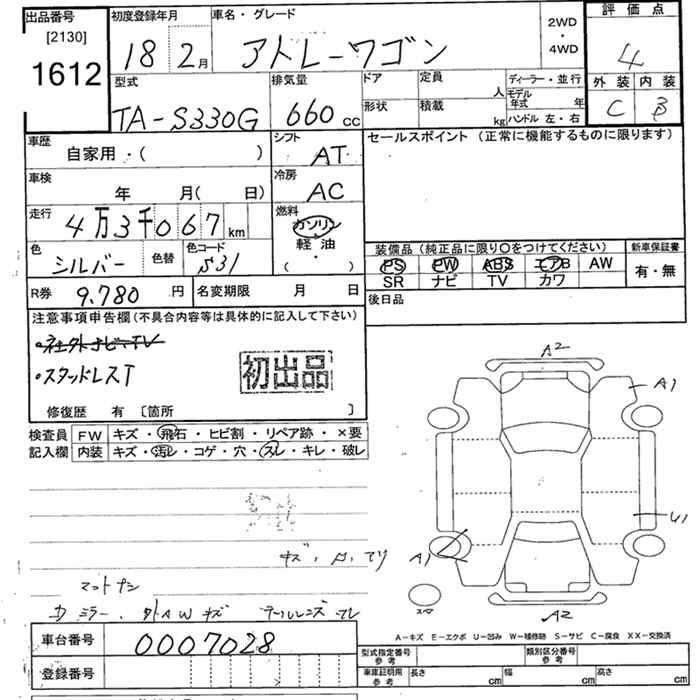 出品番号 初度登録年月 車名・グレード 2WD・4WD 評価点
[2130]
1612 18 2月 アトレーワゴン 4
型式 排気量 ドア 定員 人 ディーラー・並行 外装 内装
TA-S330G 660cc 形状 積載 kg モデル年式 年 ハンドル 左・右 C B
車歴 シフト セールスポイント（正常に機能するものに限ります）
自家用・（ ） AT
車検 冷房
年 月（ 日） AC
走行 燃料
4万3千067km ガソリン
軽油
色 色替 色コード ・
シルバー S31 （ ） 装備品（純正品に限り〇をつけてください） 新車保証書
PS PW ABS エアB AW 有・無
R券 9.780円 名変期限 月 日 SR ナビ TV カワ
後日品
注意事項申告欄（不具合内容等は具体的に記入して下さい）
・社外ナビ・TV
・スタッドレスT 初出品
修復歴 有〔箇所 〕
検査員 FW キズ・飛石・ヒビ割・リペア跡・×要
記入欄 内装 キズ・汚レ・コゲ・穴・スレ・キレ・破レ
A2
A1
U1
A1
A2
スペア
マットナシ
カミラー、外AWキズ テールレンズワレ
A－キズ E－エクボ U－凹み W－補修跡 S－サビ C－腐食 XX－交換済
車台番号 0007028 型式指定番号 参考 類別区分番号 参考
登録番号 車庫証明用 参考 長さ cm 幅 cm 高さ cm